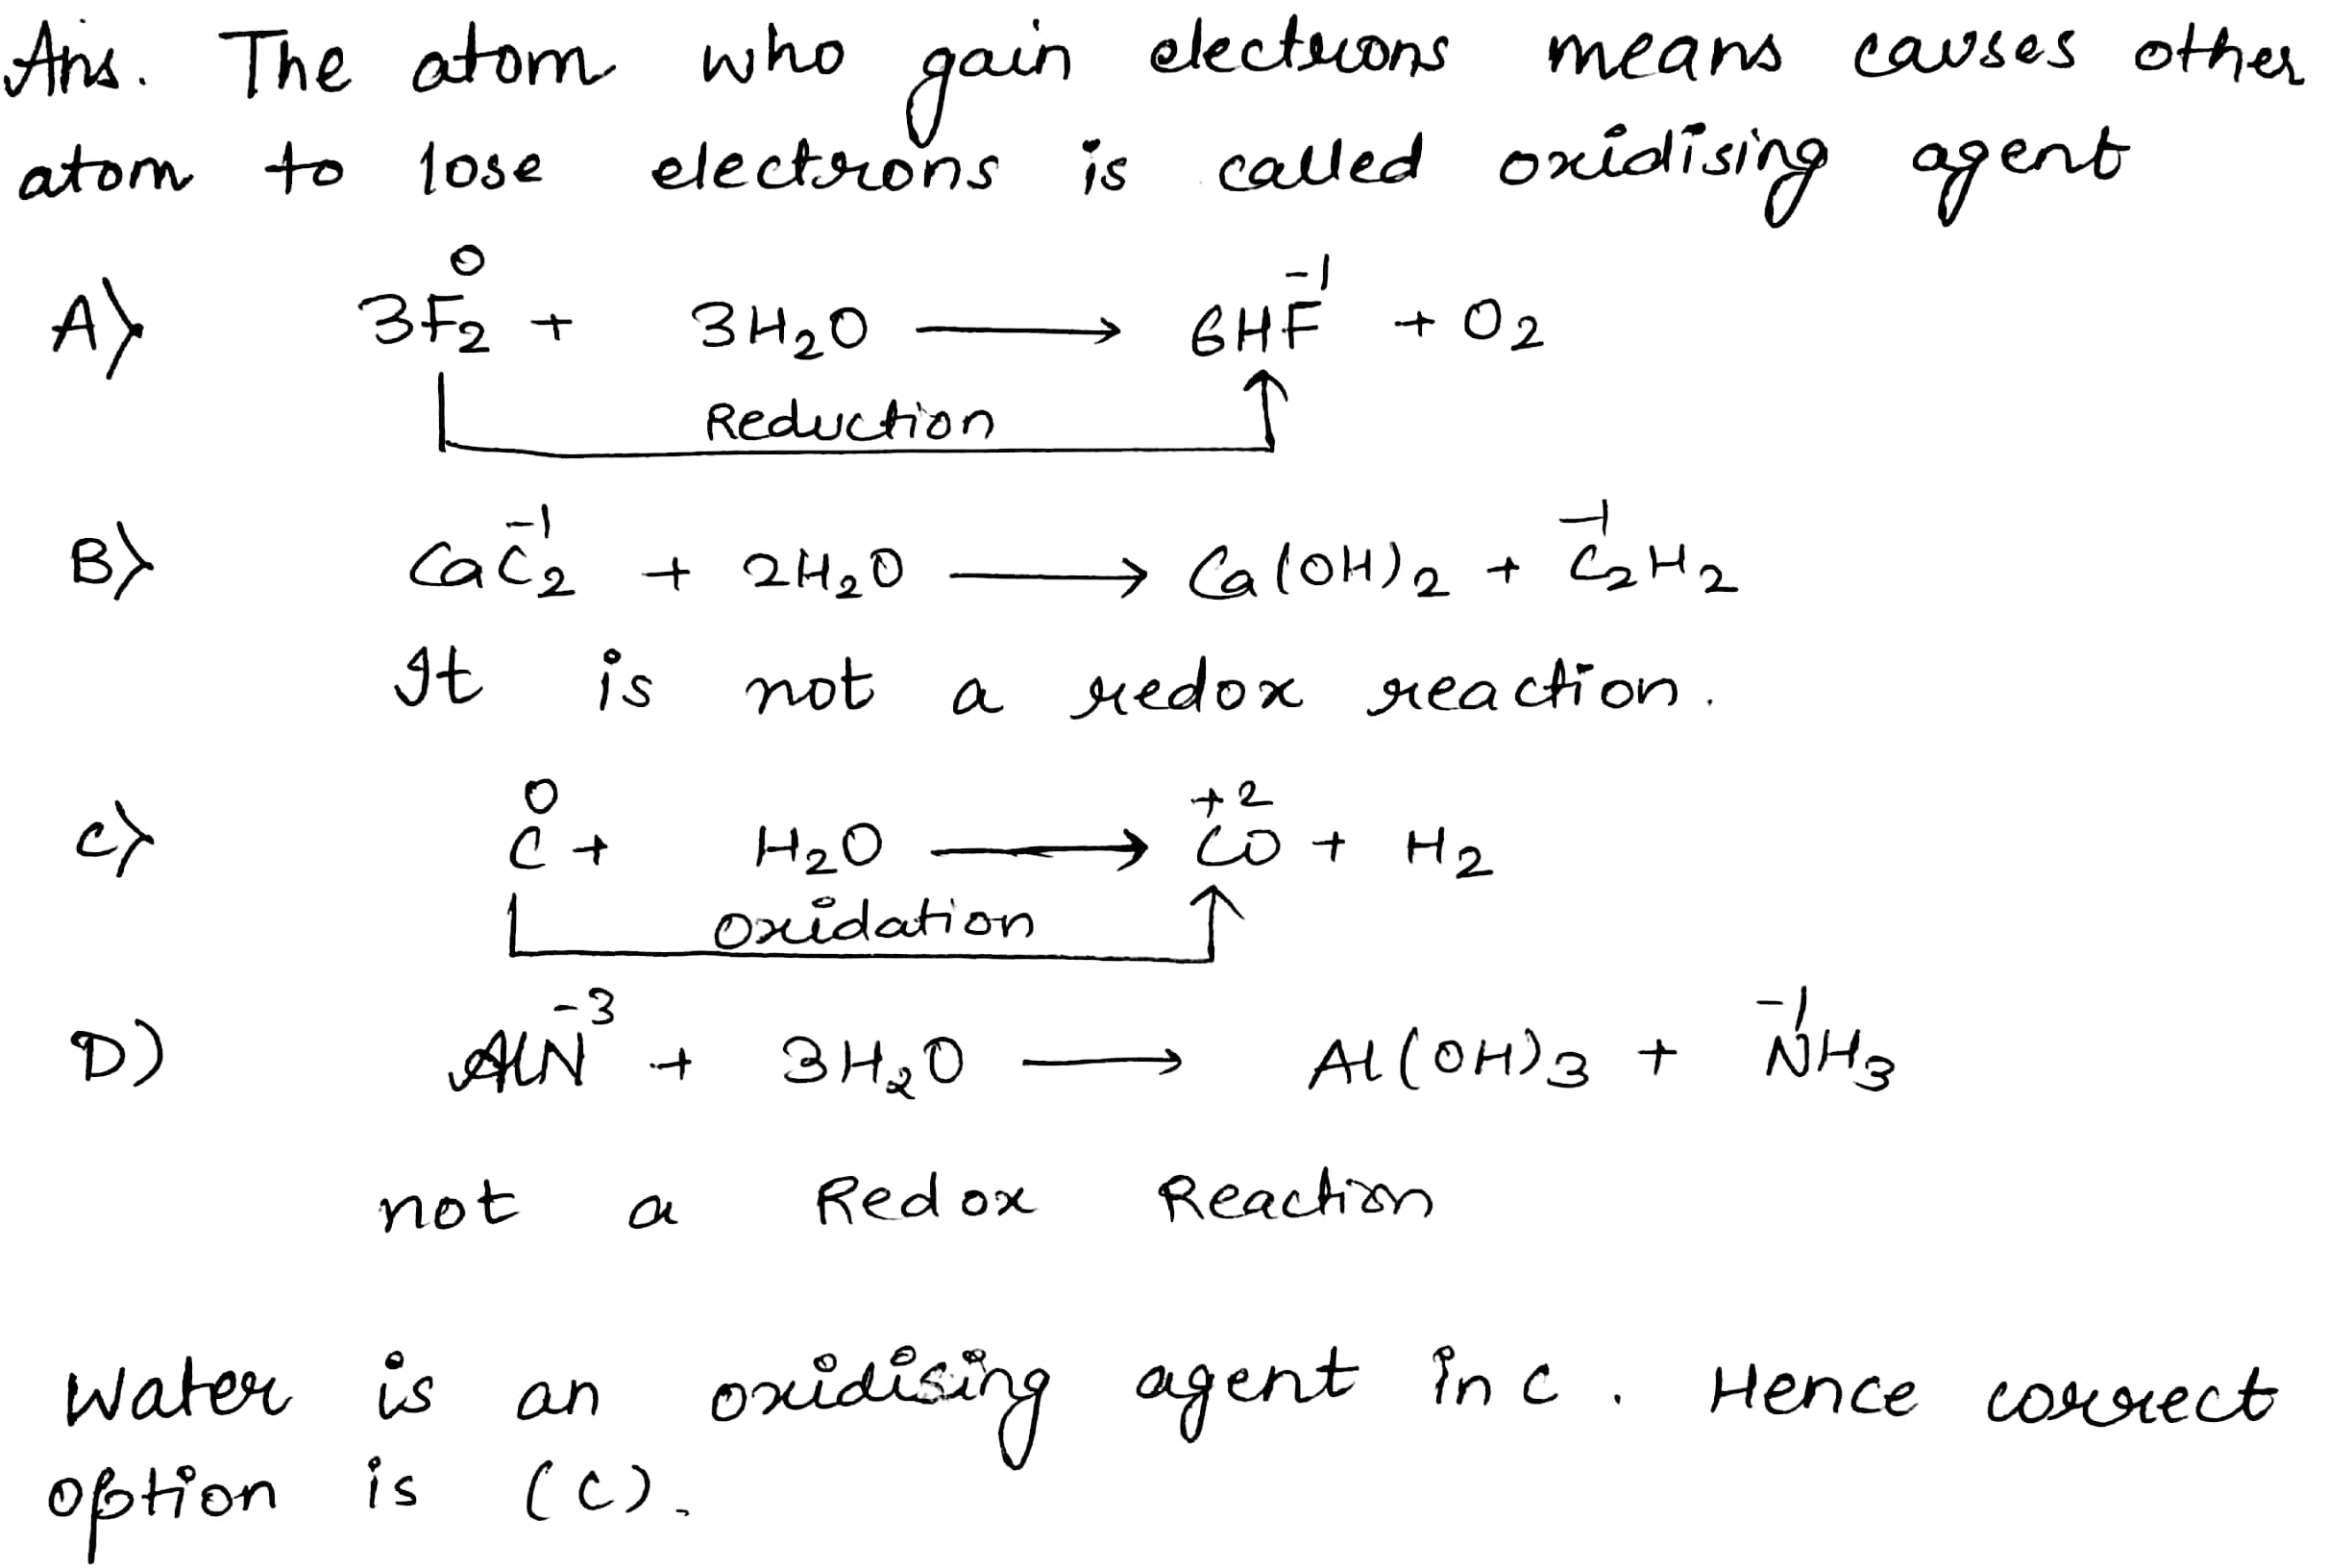 Ans. The atom who gain electrons means causes other
atom to lose electrons is called oxidising agent
0 -1
A) 3F2 + 3H2O ⟶ 6HF + O2
Reduction
-1 -1
B) CaC2 + 2H2O ⟶ Ca(OH)2 + C2H2
It is not a redox reaction.
0 +2
C) C + H2O ⟶ CO + H2
oxidation
-3 -1
D) AlN + 3H2O ⟶ Al(OH)3 + NH3
not a Redox Reaction
Water is an oxidising agent in C. Hence correct
option is (C).